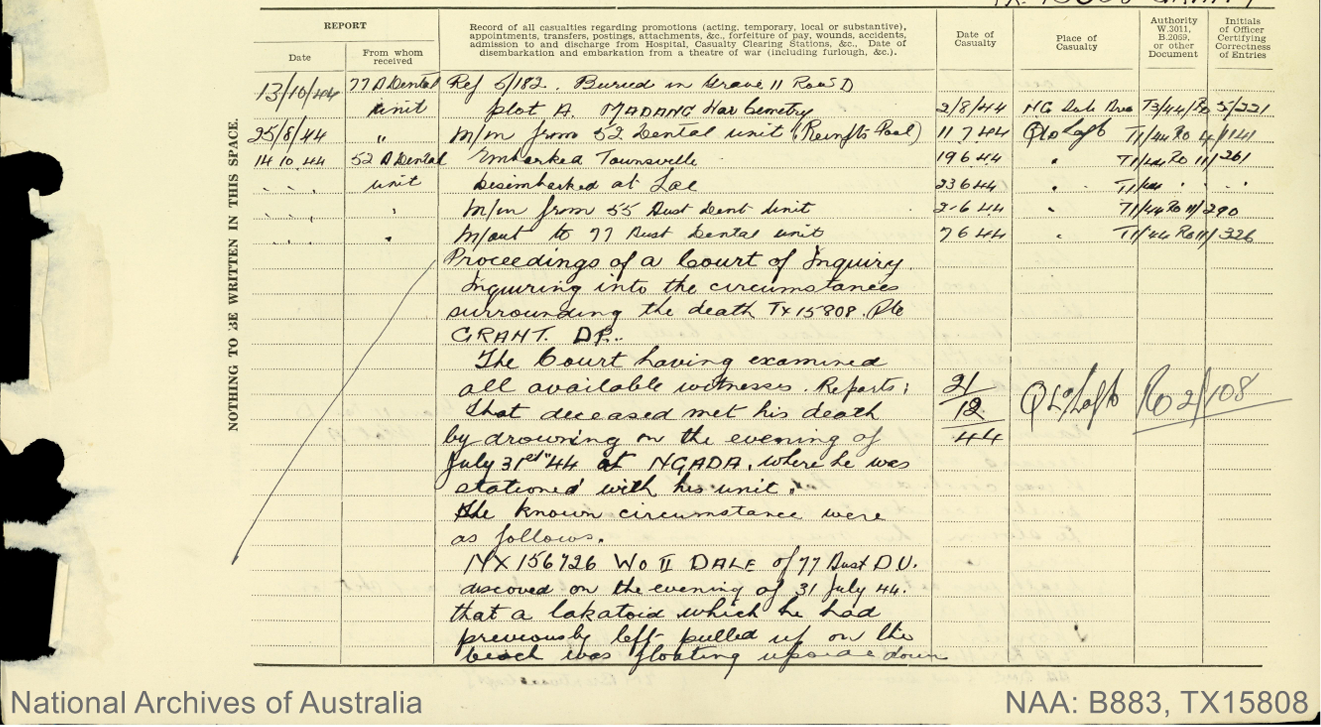 REPORT
Date
From whom received
Record of all casualties regarding promotions (acting, temporary, local or substantive),
appointments, transfers, postings, attachments, &c., forfeiture of pay, wounds, accidents,
admission to and discharge from Hospital, Casualty Clearing Stations, &c., Date of
disembarkation and embarkation from a theatre of war (including furlough, &c.).
Date of Casualty
Place of Casualty
Authority W.3011, B.2069, or other Document
Initials of Officer Certifying Correctness of Entries
NOTHING TO BE WRITTEN IN THIS SPACE.
13/10/44 77 A Dental Ref 5/182. Buried in Grave 11 Row D
unit plot A. MADANG War Cemetry 2/8/44 NG
25/8/44 " M/in from 52 Dental unit (Reinfts Pool) 11 7 44
14 10 44 52 A Dental Embarked Townsville 19 6 44
unit Disembarked at Lae 23 6 44
M/in from 55 Aust Dent Unit 2 6 44
M/out to 77 Aust Dental unit 7 6 44
Proceedings of a Court of Inquiry.
Inquiring into the circumstances
surrounding the death TX15808. Pte
GRANT. DR..
The Court having examined
all available witnesses. Reports;
that deceased met his death
by drowning on the evening of
July 31st 44 at NGADA, where he was
stationed with his unit.
The known circumstance were
as follows.
NX 156726 Wo II DALE of 77 Aust D.U.
discoved on the evening of 31 July 44.
that a lakatoid which he had
previously left pulled up on the
beach was floating upside down
21/12/44 Ro 2/108
National Archives of Australia
NAA: B883, TX15808